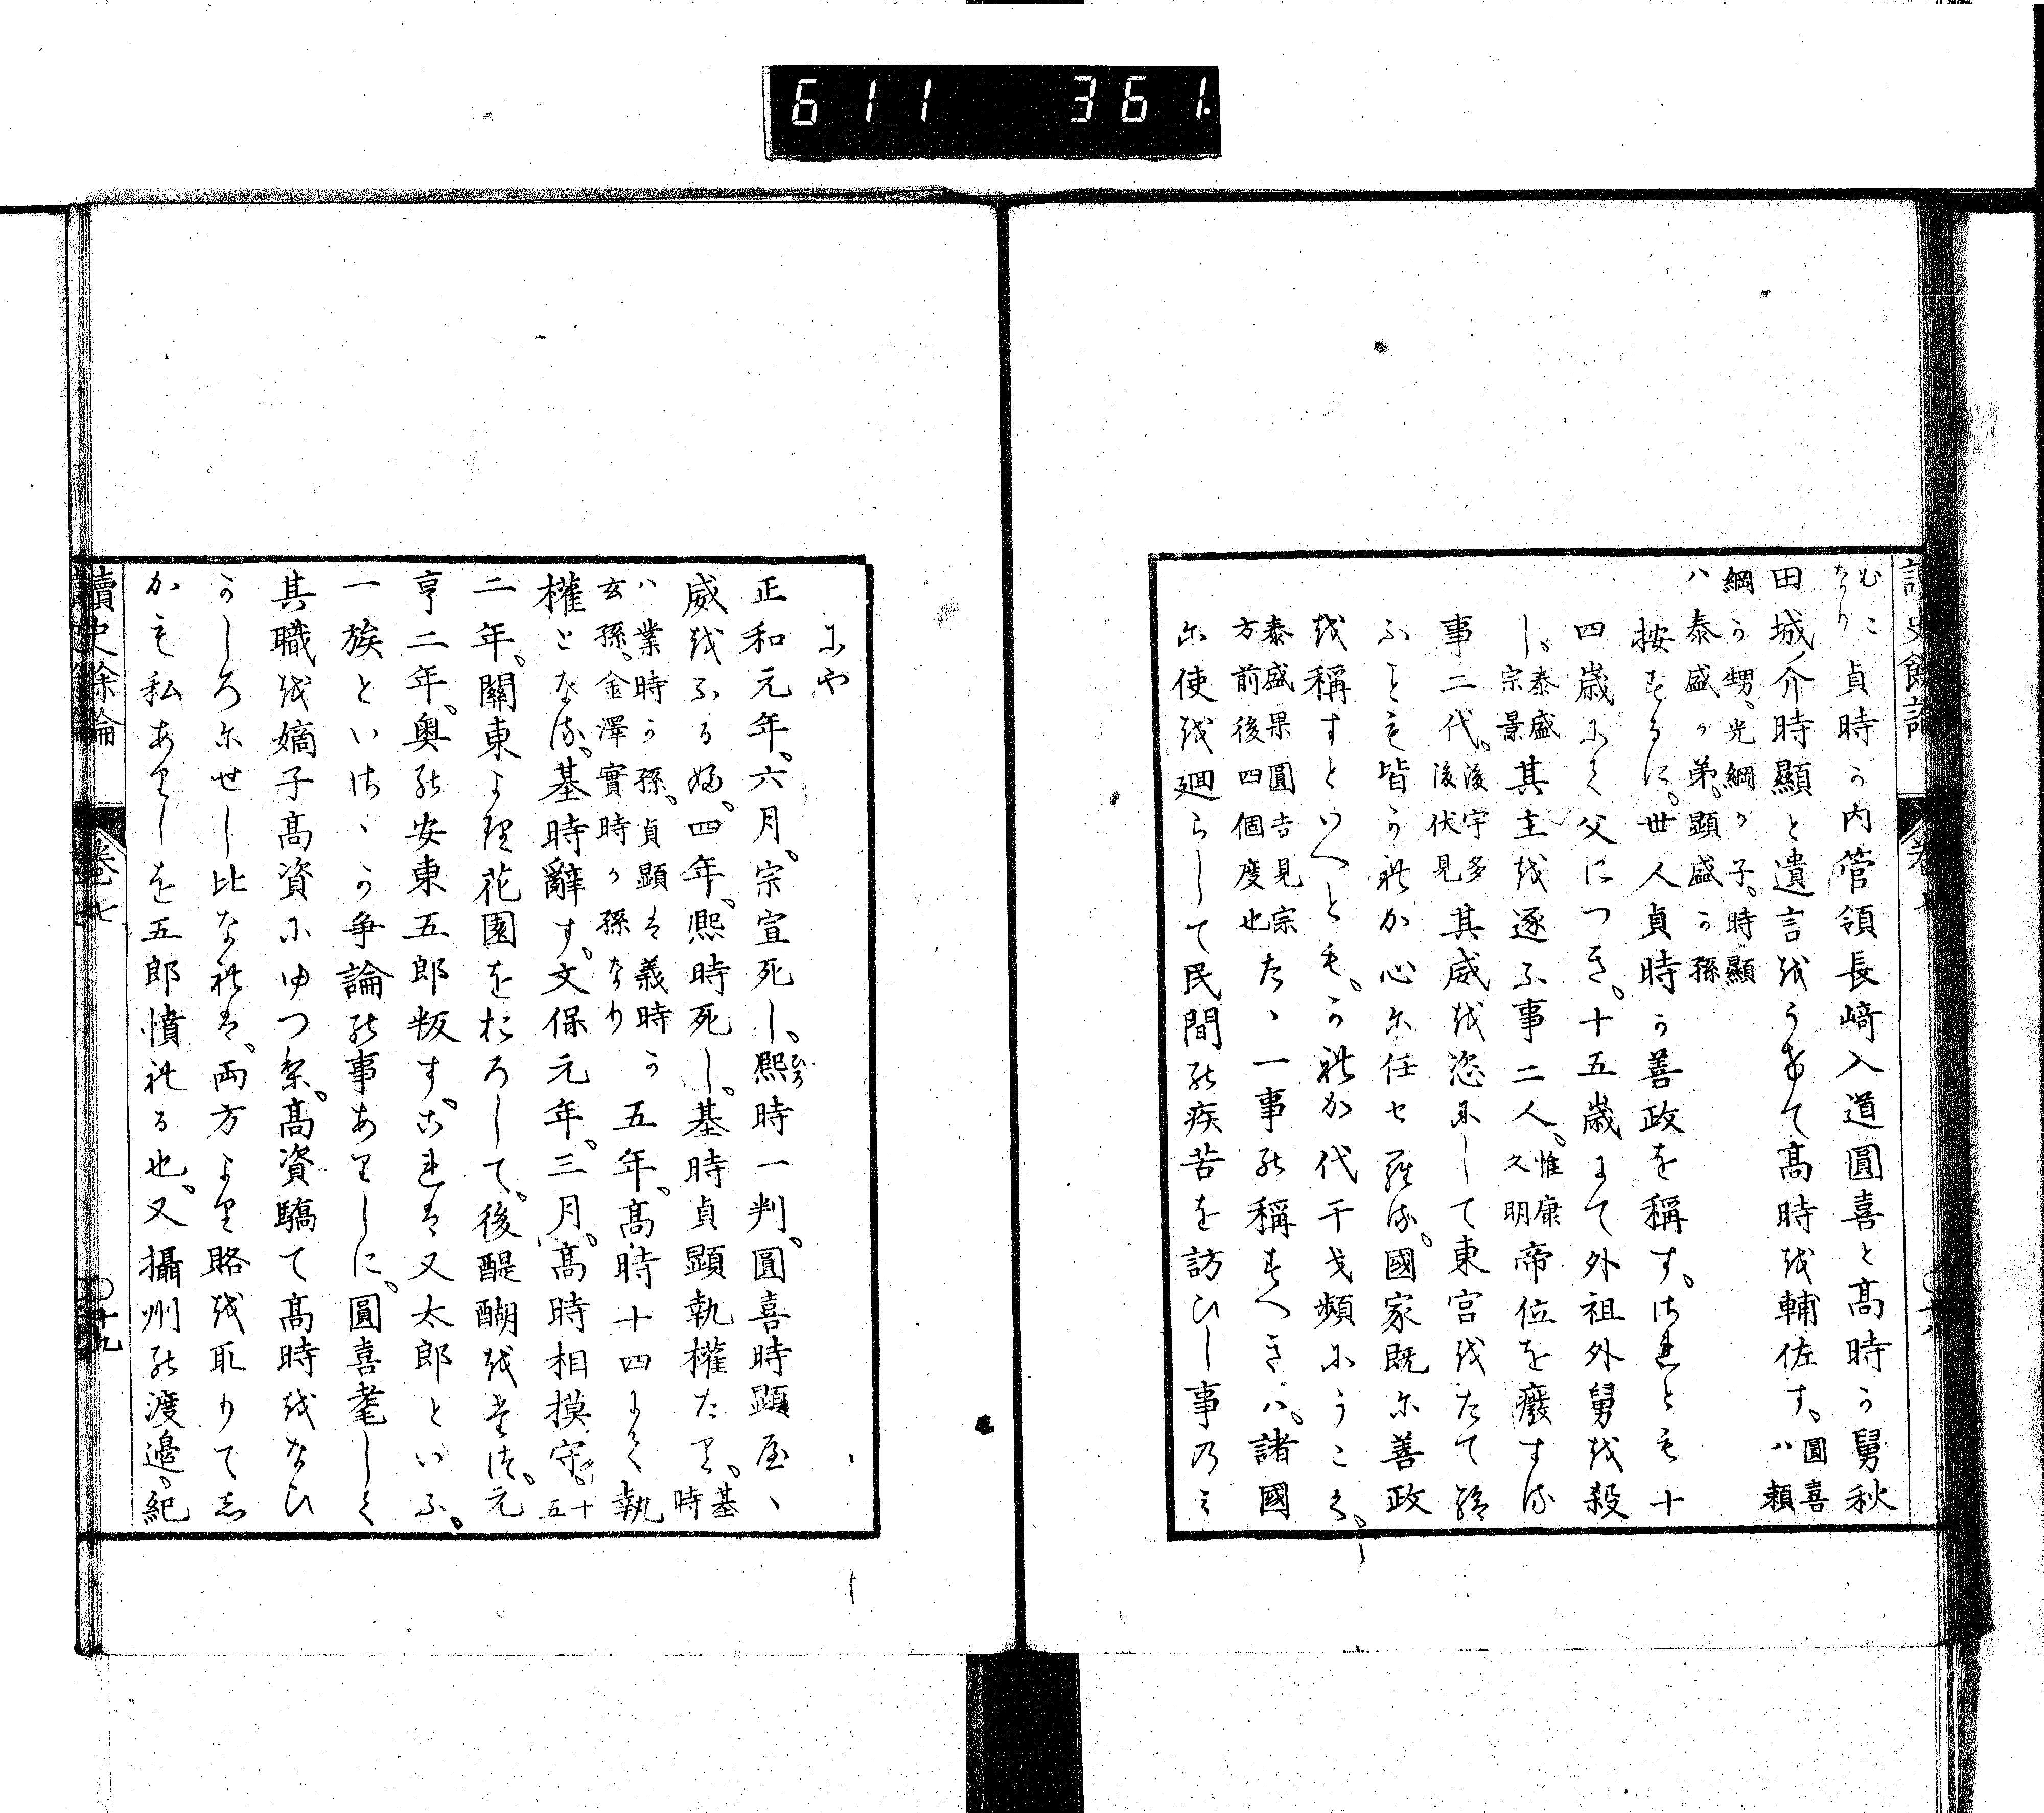 611 361.
讀史餘論
卷七
むこなり貞時か内管領長崎入道圓喜と高時か舅秋
田城ノ介時顯と遺言をうけて高時を輔佐す。圓喜ハ頼
綱か甥、光綱か子。時顯
ハ泰盛か弟。顯盛か孫
按するに。世人貞時か善政を稱す。されとも十
四歳にて父につき。十五歳にて外祖外舅を殺
し。泰盛宗景其主を逐ふ事二人。惟康久明帝位を癈する
事二代。後宇多後伏見其威を恣にして東宮をたて給
ふとも皆かれか心に任セらる。國家既に善政
を稱すといへとも。かれか代干戈頻にうこく。
泰盛果圓吉見宗方前後四個度也たゝ一事の稱すへきハ。諸國
に使を廻らして民間の疾苦を訪ひし事のミ
にや
正和元年。六月。宗宣死し、熈時一判。圓喜時顯屋〻
威をふるふ。四年。熈時死し。基時貞顯執權たり。基時
ハ業時か孫。貞顯は義時か
玄孫。金澤實時か孫なり五年。高時十四にて執
權となる。基時辭す。文保元年。三月。高時相摸守。十五
二年。關東より花園をおろして。後醍醐を立つ。元
亨二年。奥の安東五郎叛す。これは又太郎といふ。
一族といさゝか争論の事ありしに。圓喜耄しく
其職を嫡子高資にゆつる。高資驕て高時をなひ
かしろにせし比なれは、両方より賂を取りてし
かも私ありしを五郎憤れる也。又攝州の渡邉。紀
讀史餘論
卷七
〇十九